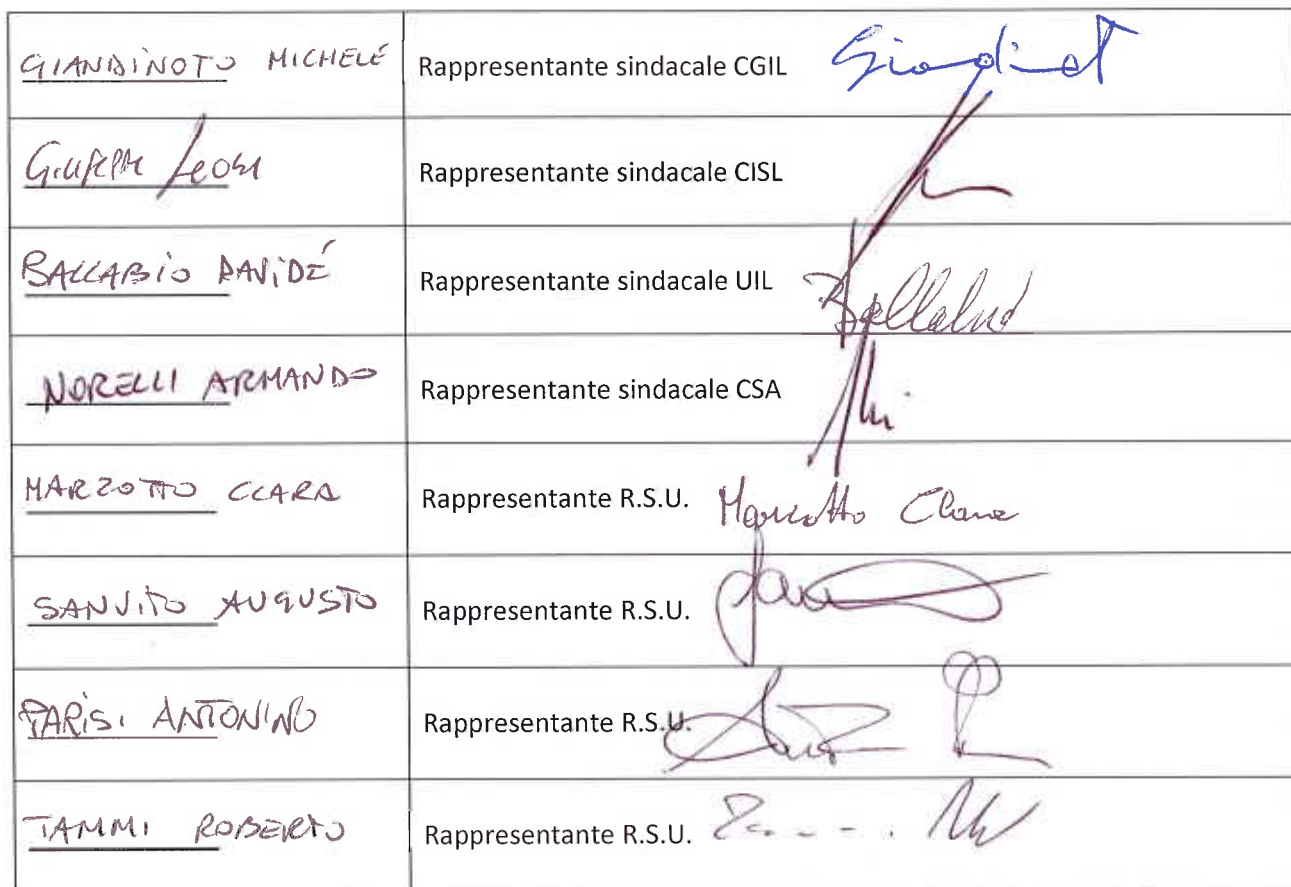 GIANDINOTO MICHELE Rappresentante sindacale CGIL
Rappresentante sindacale CISL
BALLABIO DAVIDE Rappresentante sindacale UIL Ballabio
NORELLI ARMANDO Rappresentante sindacale CSA
MARZOTTO CLARA Rappresentante R.S.U. Marzotto Clara
SANVITO AUGUSTO Rappresentante R.S.U.
PARISI ANTONINO Rappresentante R.S.U.
TAMMI ROBERTO Rappresentante R.S.U.